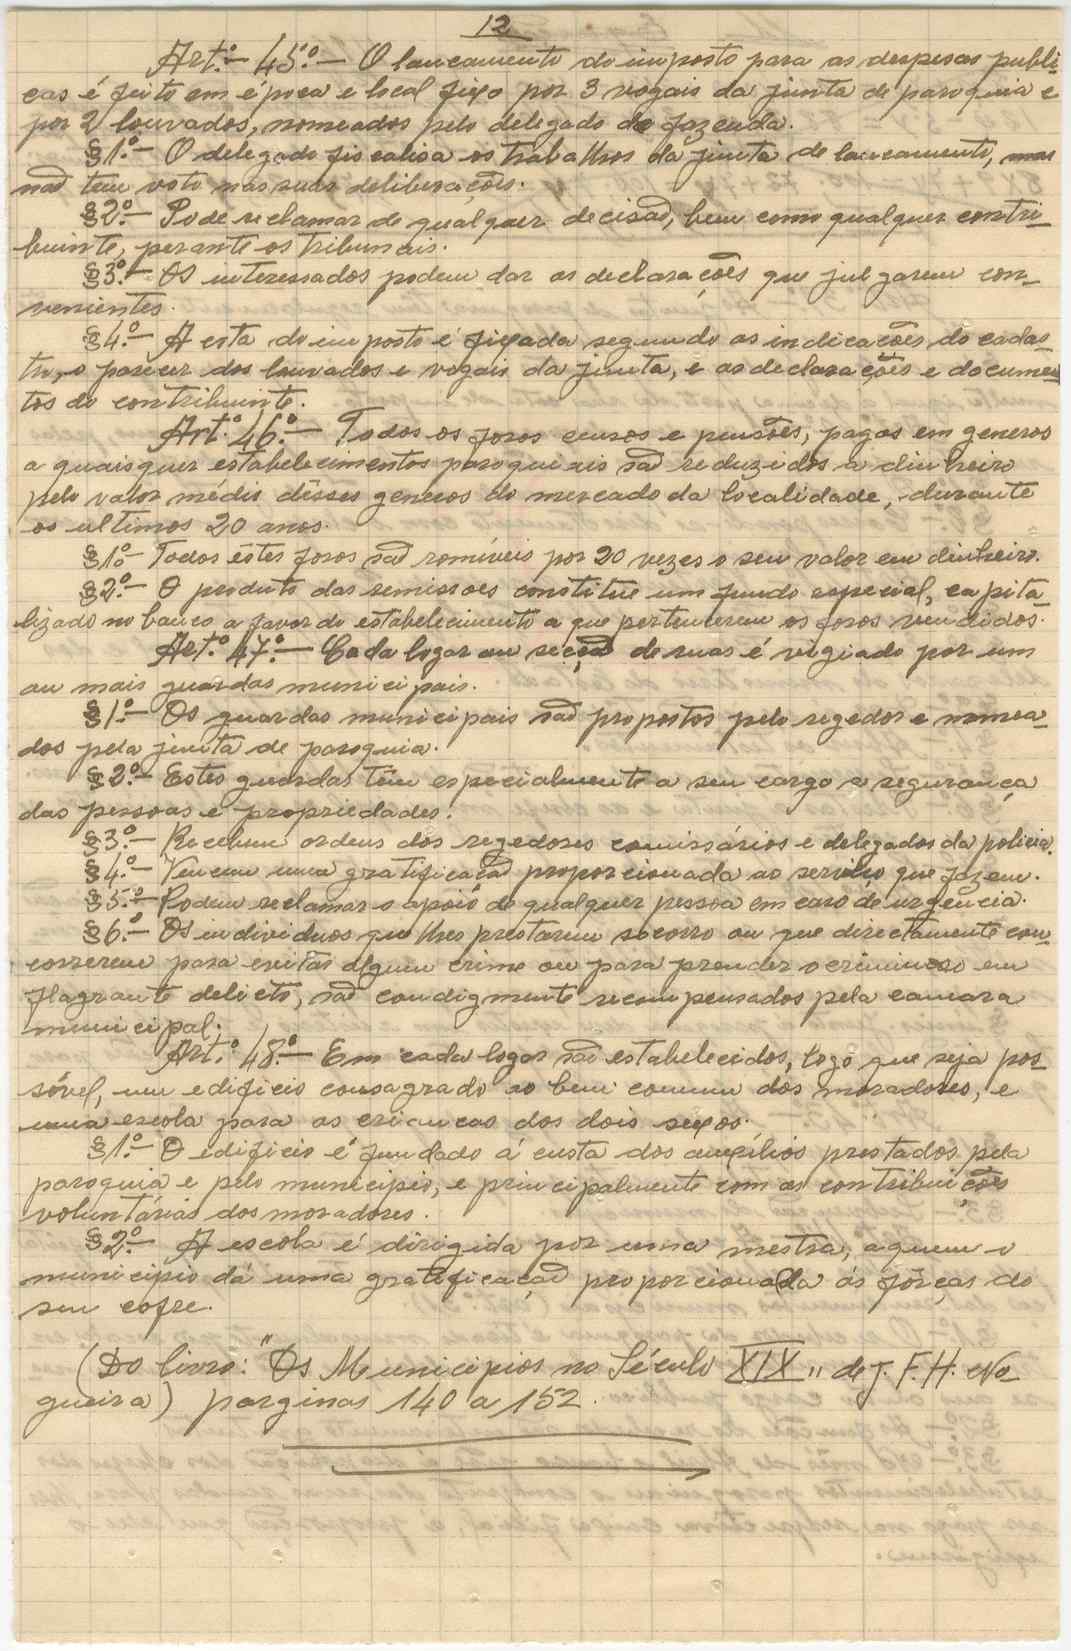 12
Art.º 45º.— O lançamento do imposto para as despesas publi-
cas é feito em época e local fixo por 3 vogais da junta de paroquia e
por 2 louvados, nomeados pelo delegado de fazenda.
§1º.— O delegado fiscalisa os trabalhos da junta de lançamento, mas
não tem voto nas suas deliberações.
§2º.— Pode reclamar de qualquer decisão, bem como qualquer contri-
buinte, perante os tribunais.
§3º.— Os interessados podem dar as declarações que julgarem con-
venientes.
§4º.— A cota do imposto é fixada segundo as indicações do cadas-
tro, o parecer dos louvados e vogais da junta, e as declarações e documen-
tos do contribuinte.
Art.º 46º.— Todos os foros censos e pensões, pagos em generos
a quaisquer estabelecimentos paroquiais são reduzidos a dinheiro
pelo valor médio dêsses generos do mercado da localidade, durante
os ultimos 20 anos.
§1º— Todos êstes foros são romíveis por 20 vezes o seu valor em dinheiro.
§2º.— O produto das remissões constitue um fundo especial, capita-
lizado no banco a favor do estabelecimento a que pertencerem os foros vendidos.
Art.º 47º.— Cada logar ou secção de ruas é vigiado por um
ou mais guardas municipais.
§1º.— Os guardas municipais são propostos pelo regedor e nomea-
dos pela junta de paroquia.
§2º.— Estes guardas têm especialmente a seu cargo a segurança
das pessoas e propriedades.
§3º.— Recebem ordens dos regedores comissários e delegados da policia.
§4º.— Vencem uma gratificação proporcionada ao serviço que fazem.
§5º.— Podem reclamar o apoio de qualquer pessoa em caso de urgência.
§6º.— Os individuos que lhes prestarem socorro ou que directamente con-
correrem para evitar algum crime ou para prender o criminoso em
flagrante delicto, são condigmente recompensados pela camara
municipal.
Art.º 48º.— Em cada logar são estabelecidos, logo que seja pos-
sível, um edificio consagrado ao bem comum dos moradores, e
uma escola para as crianças dos dois sexos.
§1º.— O edificio é fundado á custa dos auxílios prestados pela
paroquia e pelo municipio, e principalmente com as contribuições
voluntárias dos moradores.
§2º.— A escola é dirigida por uma mestra, a quem o
municipio dá uma gratificação proporcionada ás fôrças do
seu cofre.
(Do livro: "Os Municipios no Século XIX" de J. F. H. No-
gueira) parginas 140 a 152.